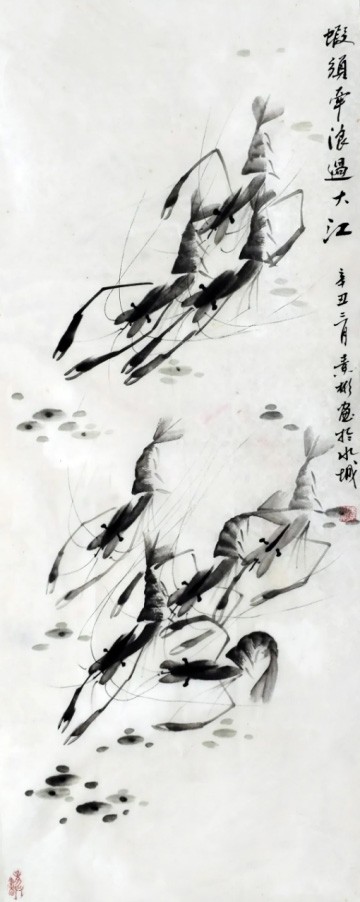 蝦須牽浪過大江
辛丑二月袁彬画於水城